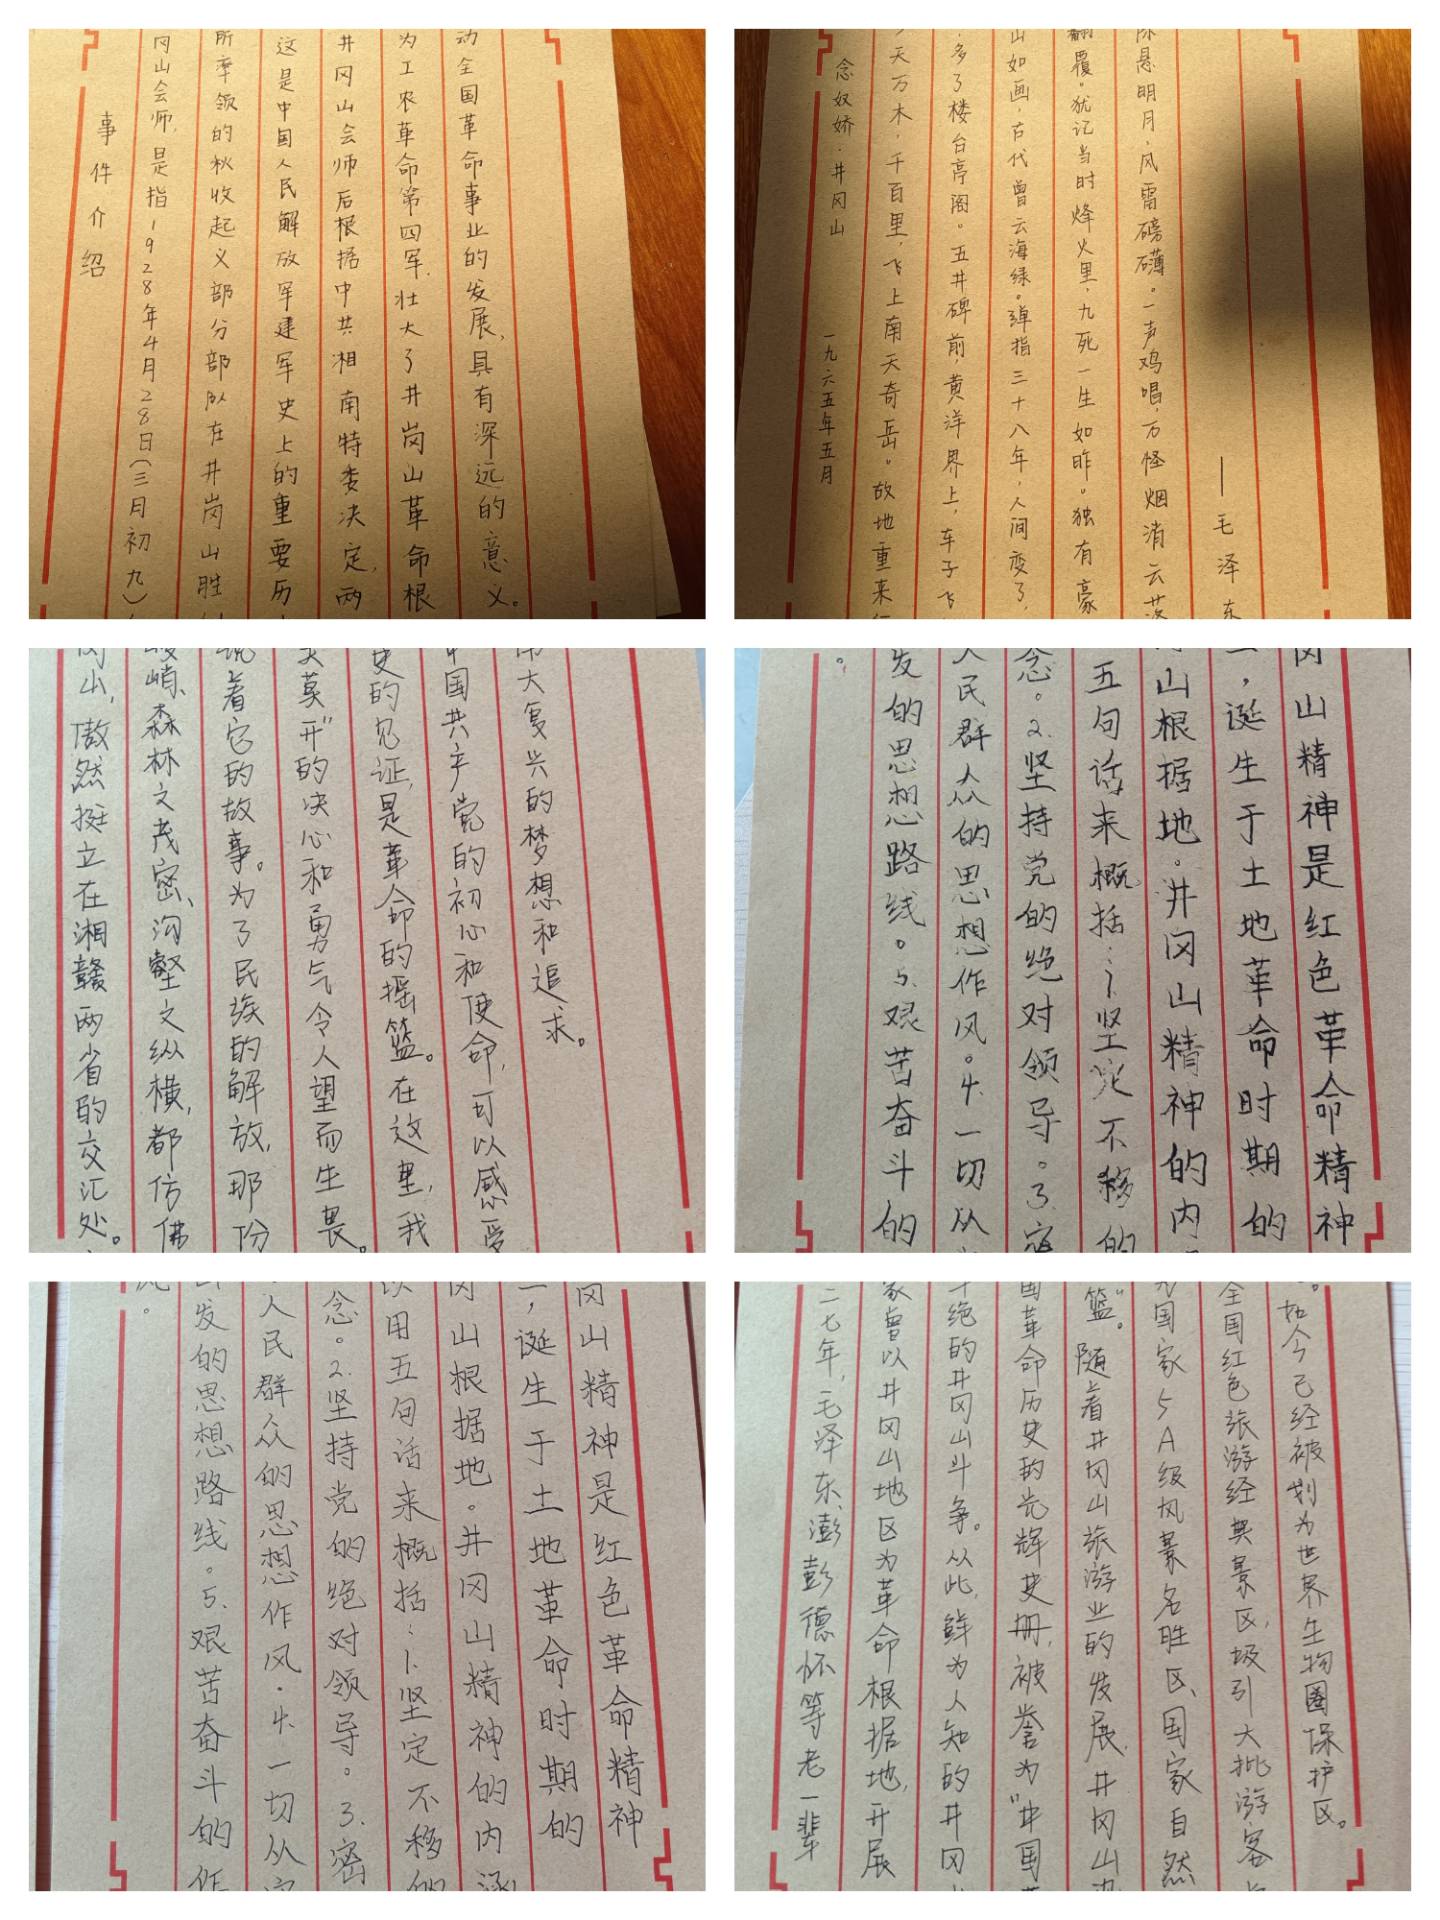 事件介绍
冈山会师,是指1928年4月28日(三月初九)
所率领的秋收起义部分部队在井岗山胜
这是中国人民解放军建军史上的重要历
井冈山会师后根据中共湘南特委决定,两
为工农革命第四军,壮大了井岗山革命根
动全国革命事业的发展,具有深远的意义。
念奴娇·井冈山 一九六五年五月
天万木,千百里,飞上南天奇岳。故地重来
多了楼台亭阁。五井碑前,黄洋界上,车子飞
山如画,古代曾云海绿。弹指三十八年,人间变了,
翻覆。犹记当时烽火里,九死一生如昨。独有豪
悬明月,风雷磅礴。一声鸡唱,万怪烟消云落
——毛泽东
冈山,傲然挺立在湘赣两省的交汇处。
峻峭、森林之茂密、沟壑之纵横,都仿佛
说着它的故事。为了民族的解放,那份
莫开"的决心和勇气令人望而生畏。
史的见证,是革命的摇篮。在这里,我
中国共产党的初心和使命,可以感受
伟大复兴的梦想和追求。
冈山精神是红色革命精神
一,诞生于土地革命时期的
山根据地。井冈山精神的内
五句话来概括:1.坚定不移的
念。2.坚持党的绝对领导。3.密
人民群众的思想作风。4.一切从
发的思想路线。5.艰苦奋斗的
。
冈山精神是红色革命精神
一,诞生于土地革命时期的
冈山根据地。井冈山精神的内涵
用五句话来概括:1.坚定不移的
念。2.坚持党的绝对领导。3.密
人民群众的思想作风。4.一切从
发的思想路线。5.艰苦奋斗的作
。
二七年,毛泽东、澎彭德怀等老一辈
家曾以井冈山地区为革命根据地,开展
绝的井冈山斗争。从此,鲜为人知的井冈
国革命历史的光辉史册,被誉为"中国革
篮"。随着井冈山旅游业的发展,井冈山
为国家5A级风景名胜区、国家自然
全国红色旅游经典景区,圾引大批游客
。如今已经被划为世界生物圈保护区。